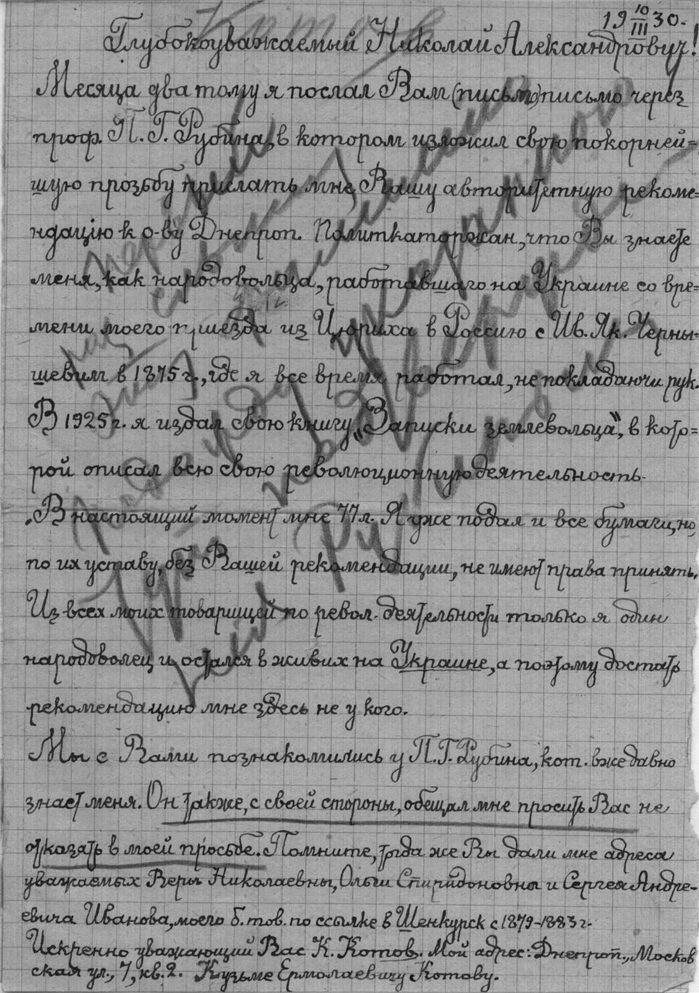 Котов
19 10/III 30.
Глубокоуважаемый Николай Александрович!
Месяца два тому я послал Вам (письмо) письмо через
проф. П. Г. Рубина, в котором изложил свою покорней=
шую прозьбу прислать мне Вашу авторитетную рекоме-
ндацію к о-ву Днепроп. Политкаторжан, что Вы знаете
меня, как народовольца, работавшаго на Украине со вре-
мени моего приезда из Цюриха в Россию с Ив. Як. Черны-
шевим в 1875 г., где я все время работал, не покладаючи рук.
В 1925 г. я издал свою книгу „Записки землевольца", в кото=
рой описал всю свою революционную деятельность.
В настоящий момент мне 77 л. Я уже подал и все бумаги, но
по их уставу, без Вашей рекомендации, не имеют права принять.
Из всех моих товарищей по револ. деятельности только я один
народоволец и остался в живих на Украине, а поэтому достать
рекомендацию мне здесь не у кого.
Мы с Вами познакомились у П. Г. Рубина, кот. вже давно
знает меня. Он также, с своей стороны, обещал мне просить Вас не
отказать в моей просьбе. Помните, тогда же Вы дали мне адреса
уважаемых Веры Николаевны, Ольги Спиридоновны и Сергея Андре-
евича Иванова, моего б. тов. по ссылке в Шенкурск с 1879-1883 г.
Искренно уважающий Вас К. Котов. Мой адрес: Днепроп., Москов
ская ул., 7, кв. 2. Кузьме Ермолаевичу Котову.